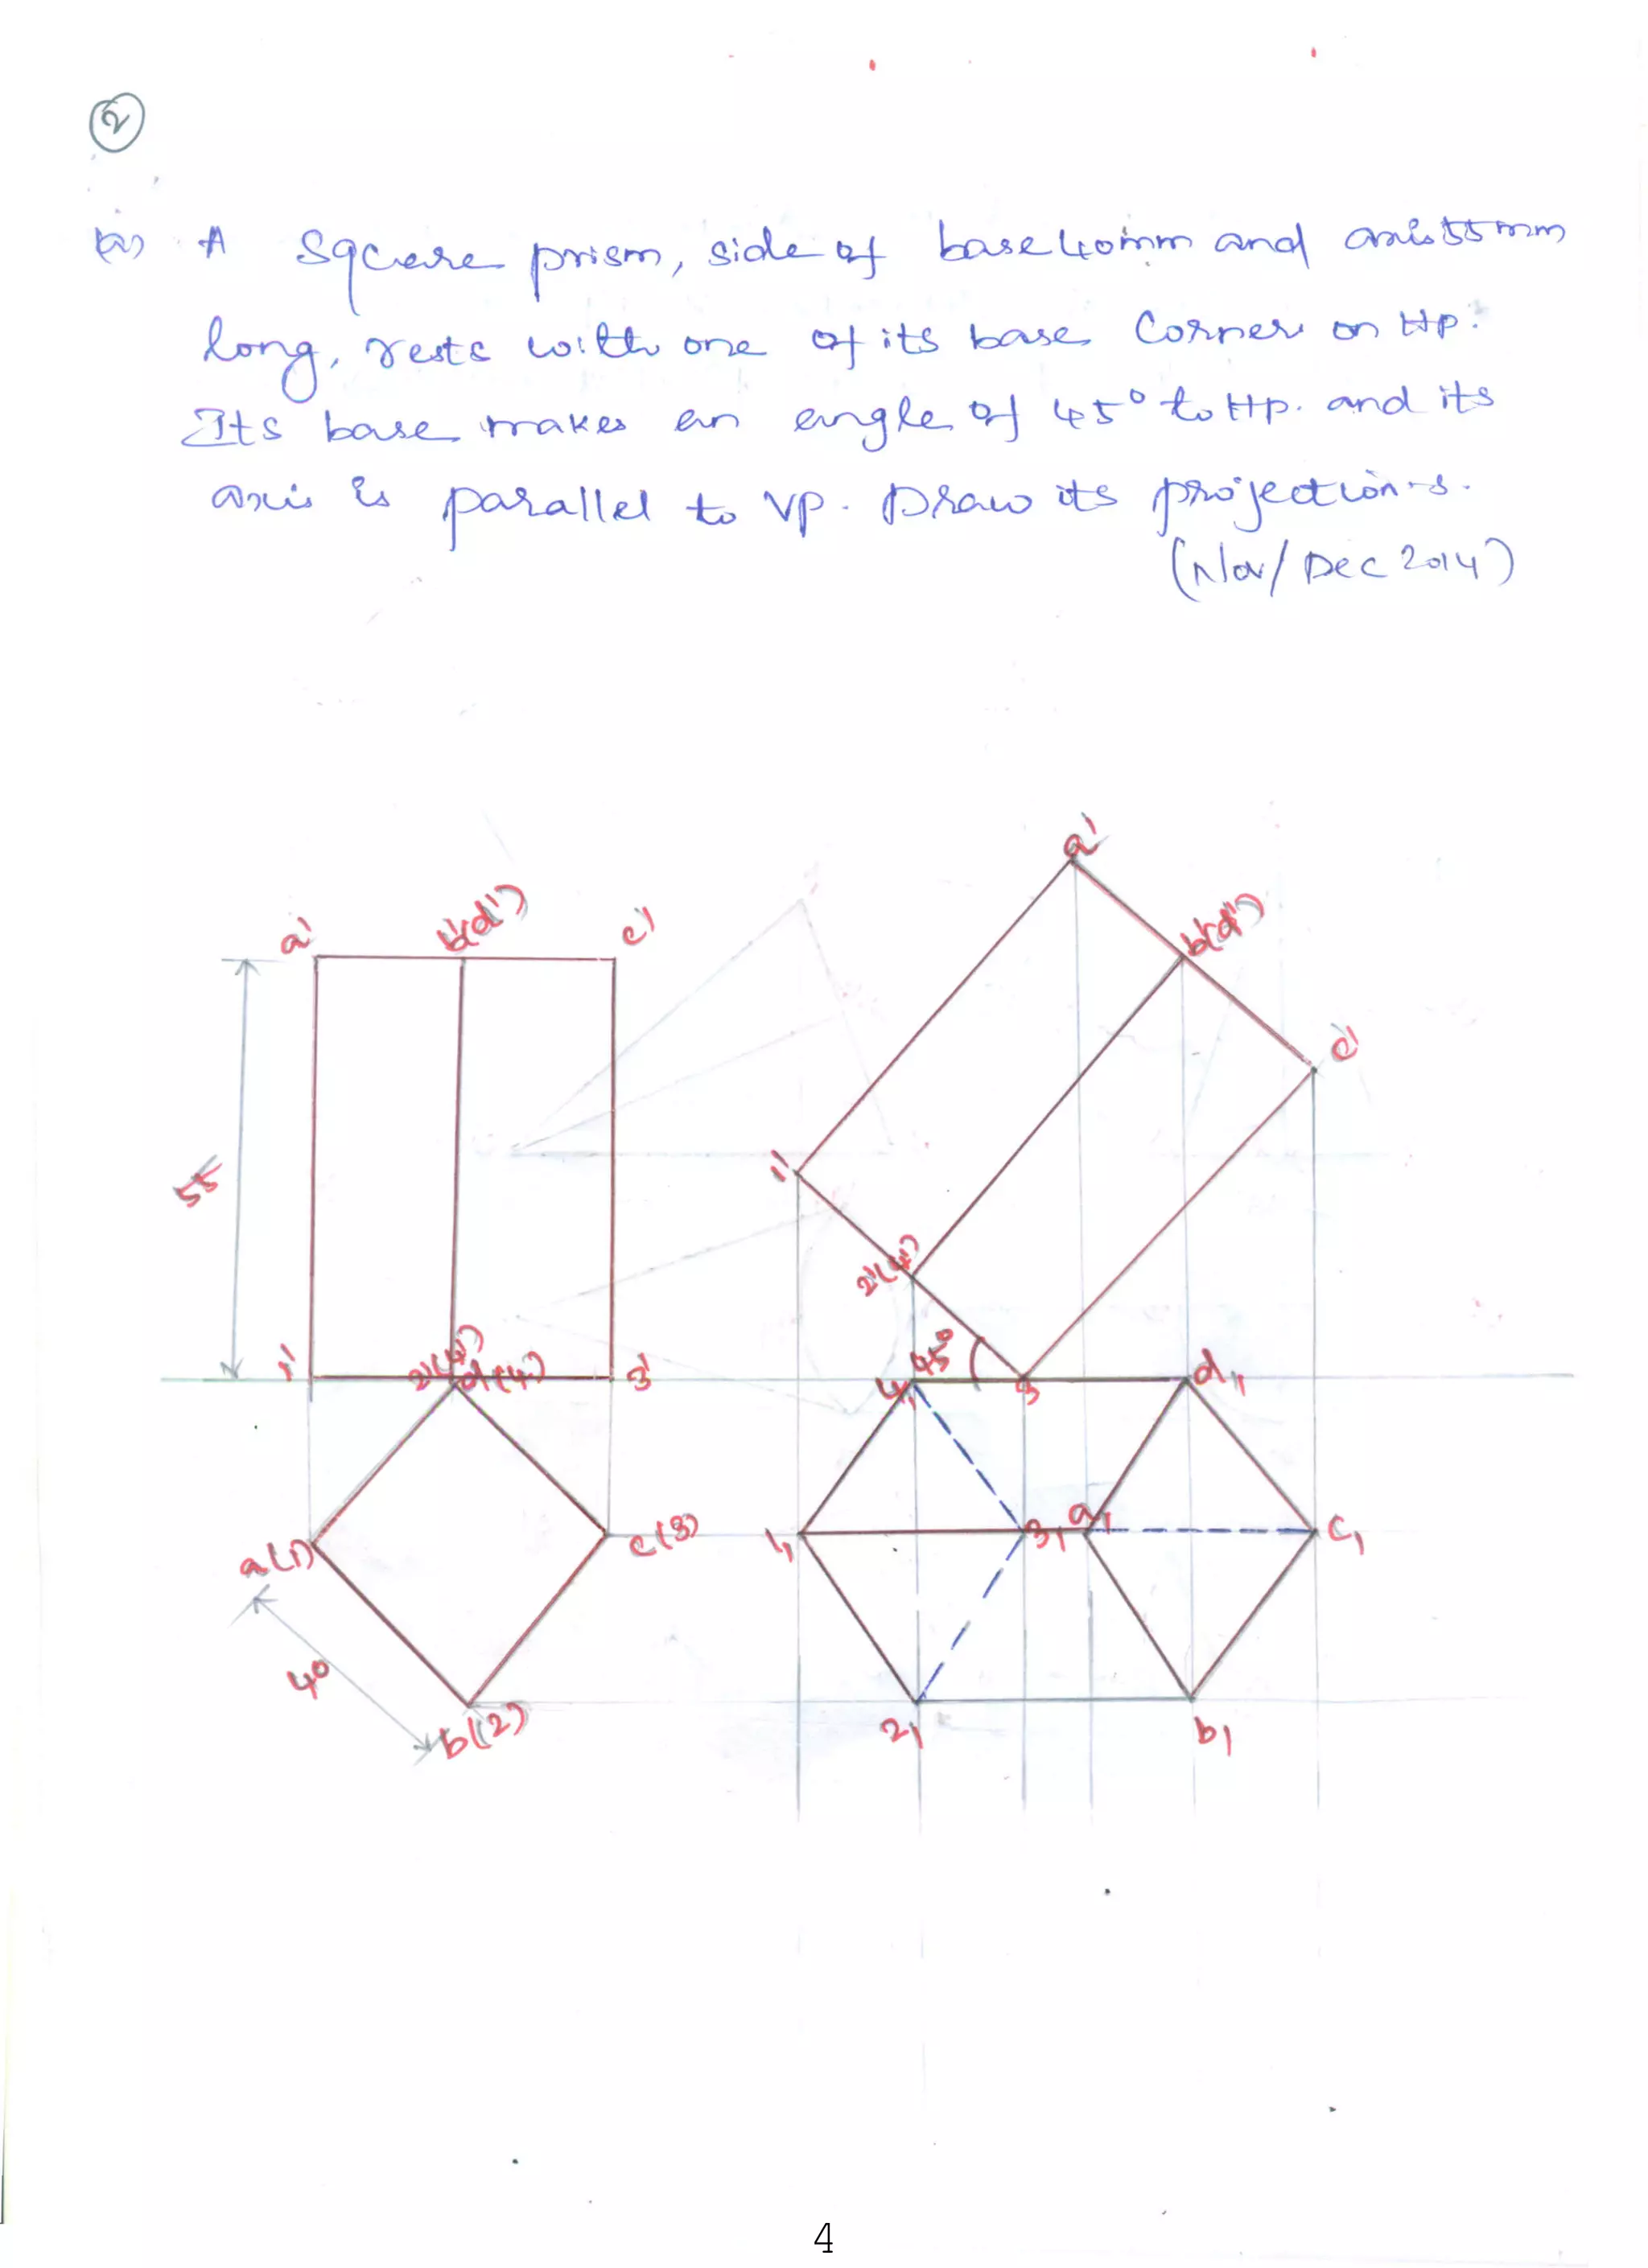 2
(a) A square prism, side of base 40mm and axis 55mm
long, rests with one of its base corner on HP.
Its base makes an angle of 45° to HP. and its
axis is parallel to VP. Draw its projections.
(Nov/Dec 2014)
a'
b'(d')
c'
a'
b'(d')
c'
55
1'
2'(4')
1'
2'(4')
d(4)
3'
45°
4₁
3
d₁
a(1)
c(3)
1₁
3₁
a₁
c₁
40
b(2)
2₁
b₁
4